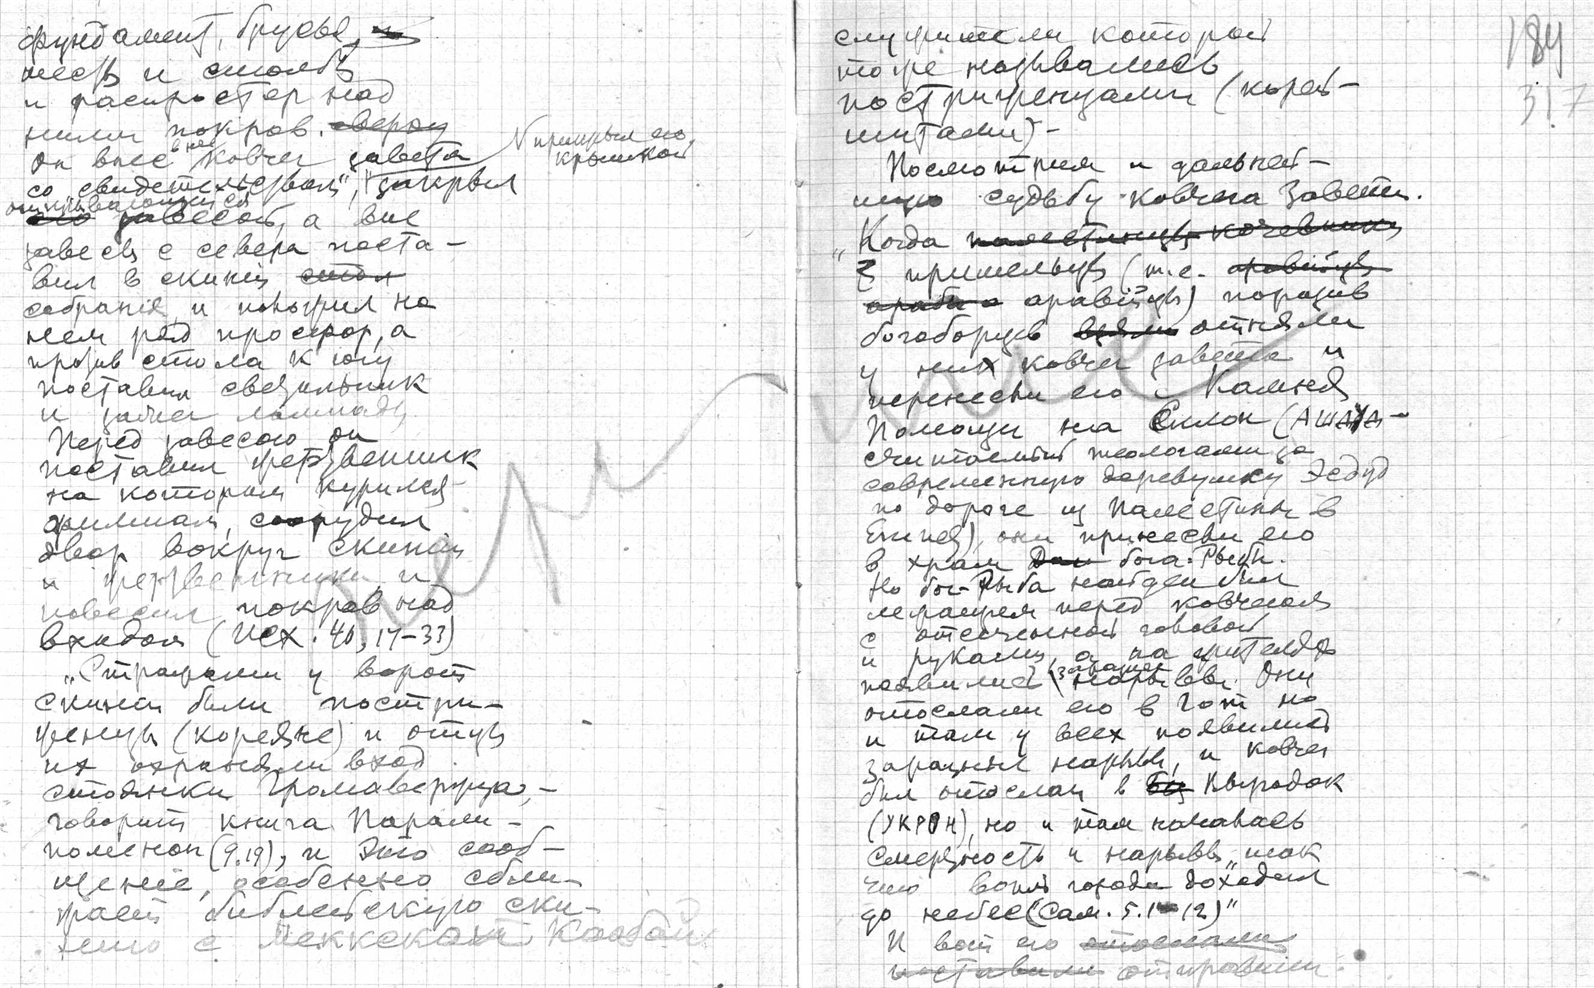 фундамент, брусья,
шесты и столбы
и распростер над
ними покров.
он внес в нее ковчег завета
и прикрыл его
крышкой
со „свидетельством",
открывающийся
завесой, а вне
завесы с севера поста-
вил в скинии стол
собрания и положил на
нем ряд просфор, а
против стола к югу
поставил светильник
и зажег лампады
Перед завесою он
поставил жертвенник
на котором курился
фимиам, соорудил
двор вокруг скинии
и жертвенника и
повесил покров над
входом (Исх. 40, 17-33)
„Стражами у ворот
скинии были постри-
женцы (кореяне) и отцы
их охраняли вход
стоянки Громовержца, —
говорит книга Парали-
поменон (9.19), и это сооб-
щение, особенно сбли-
жает библейскую ски-
нию с Меккской Каабой
служители которой
тоже назывались
постриженцами (корей-
шитами) -
Посмотрим и дальней-
шую судьбу ковчега Завета.
„Когда палестинцы кочевники
пришельцы (т.е. аравийцы
арабы аравийцы) поразив
богоборцев взяли отняли
у них ковчег завета и
перенесли его с Камня
Помощи на Склон (АШДД-
считаемый теологами за
современную деревушку Эсдуд
по дороге из Палестины в
Египет), они принесли его
в храм бога-Рыбы.
Но бог-Рыба найден был
лежащем перед ковчегом
с отсеченной головой
и руками, а на жителях
появились заразные нарывы. Они
отослали его в Гат но
и там у всех появились
заразные нарывы, и ковчег
был отослан в Выродок
(УКРОН), но и там началась
смертность и нарывы, „так
что вопль города доходил
до небес (Сам. 5.1-12)"
И вот его отослали
поставили отправили
184
317